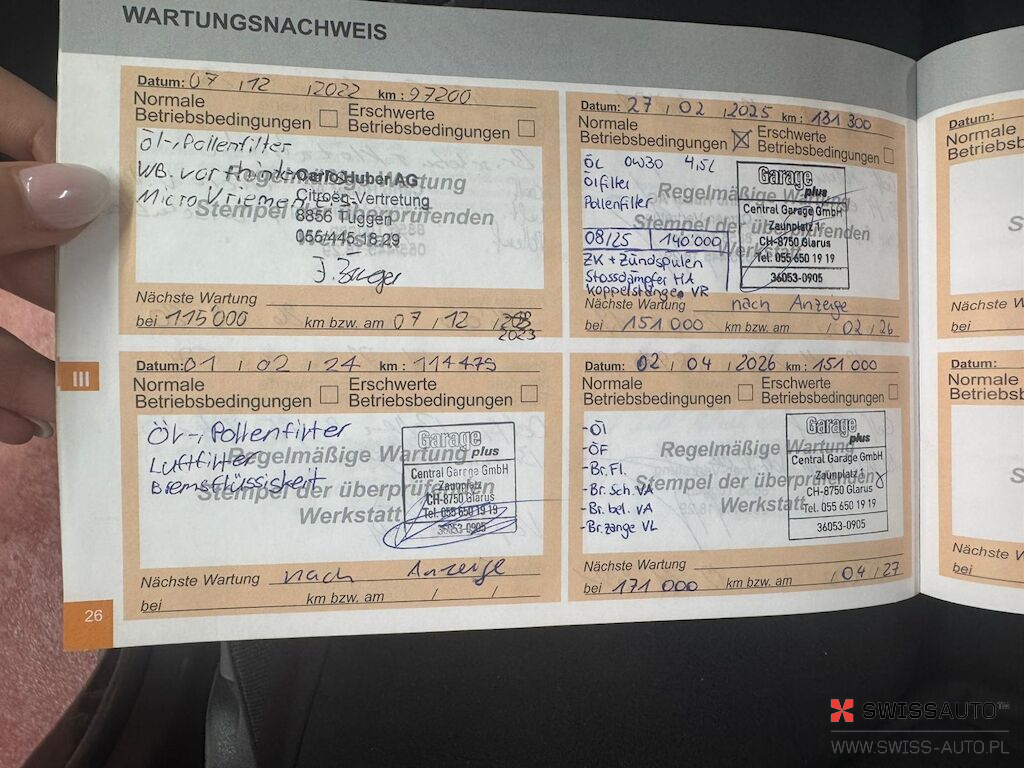 WARTUNGSNACHWEIS
Datum: 07 / 12 / 2022 km : 97200
Normale
Betriebsbedingungen
Erschwerte
Betriebsbedingungen
Öl-, Pollenfilter
WB. vorhanden
Micro Vriemen
Regelmäßige Wartung
Stempel der überprüfenden
Carlo Huber AG
Citroën-Vertretung
8856 Tuggen
055/445 18 29
Nächste Wartung
bei 115'000 km bzw. am 07 / 12 / 2023
Datum: 01 / 02 / 24 km : 114475
Normale
Betriebsbedingungen
Erschwerte
Betriebsbedingungen
Öl-, Pollenfilter
Luftfilter
Bremsflüssigkeit
Regelmäßige Wartung
Stempel der überprüfenden
Werkstatt
Garage
plus
Central Garage GmbH
Zaunplatz 1
CH-8750 Glarus
Tel. 055 650 19 19
36053-0905
Nächste Wartung nach Anzeige
bei km bzw. am / /
26
III
Datum: 27 / 02 / 2025 km : 131 300
Normale
Betriebsbedingungen
Erschwerte
Betriebsbedingungen
Öl 0W30 4,5L
Ölfilter
Pollenfilter
08/25 140'000
ZK + Zündspulen
Stossdämpfer HA
Koppelstange VR
Regelmäßige Wartung
Stempel der überprüfenden
Werkstatt
Garage
plus
Central Garage GmbH
Zaunplatz 1
CH-8750 Glarus
Tel. 055 650 19 19
36053-0905
Nächste Wartung nach Anzeige
bei 151 000 km bzw. am / 02 / 26
Datum: 02 / 04 / 2026 km : 151 000
Normale
Betriebsbedingungen
Erschwerte
Betriebsbedingungen
-Öl
-ÖF
-Br. Fl.
-Br. Sch. VA
-Br. bel. VA
-Br. zange VL
Regelmäßige Wartung
Stempel der überprüfenden
Werkstatt
Garage
plus
Central Garage GmbH
Zaunplatz 1
CH-8750 Glarus
Tel. 055 650 19 19
36053-0905
Nächste Wartung
bei 171 000 km bzw. am / 04 / 27
Datum:
Normale
Betriebsbed
Nächste Wart
bei
Datum:
Normale
Betriebsbe
Nächste Wa
bei
SWISSAUTO™
WWW.SWISS-AUTO.PL